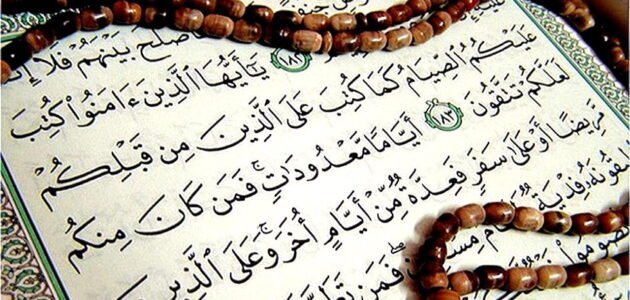 بَيْنَهُمْ فَلَآ
١٨٢ يَٰٓأَيُّهَا ٱلَّذِينَ ءَامَنُوا۟ كُتِبَ
عَلَيْكُمُ ٱلصِّيَامُ كَمَا كُتِبَ عَلَى ٱلَّذِينَ مِن قَبْلِكُمْ
لَعَلَّكُمْ تَتَّقُونَ ١٨٣ أَيَّامًا مَّعْدُودَٰتٍ ۚ فَمَن كَانَ مِنكُم
مَّرِيضًا أَوْ عَلَىٰ سَفَرٍ فَعِدَّةٌ مِّنْ أَيَّامٍ أُخَرَ ۚ وَعَلَى ٱلَّذِينَ
فِدْيَةٌ فَمَن